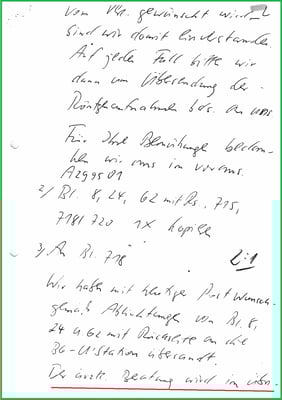 vom Vk. gewünscht wird,
sind wir damit einverstanden.
Auf jeden Fall bitte wir
dann um Übersendung der
Röntgenaufnahmen bds. an uns
Für Ihre Bemühungen bedan-
ken wir uns im voraus.
A299501
2) Bl. 8, 24, 62 mit Rs. 715,
718/720 1x Kopien
3) An Bl. 718
Wir haben mit heutiger Post wunsch-
gemäß Ablichtungen von Bl. 8,
24 u 62 mit Rückseite an die
BG-U'Station übersandt.
Der ärztl. Beratung wird im übri.